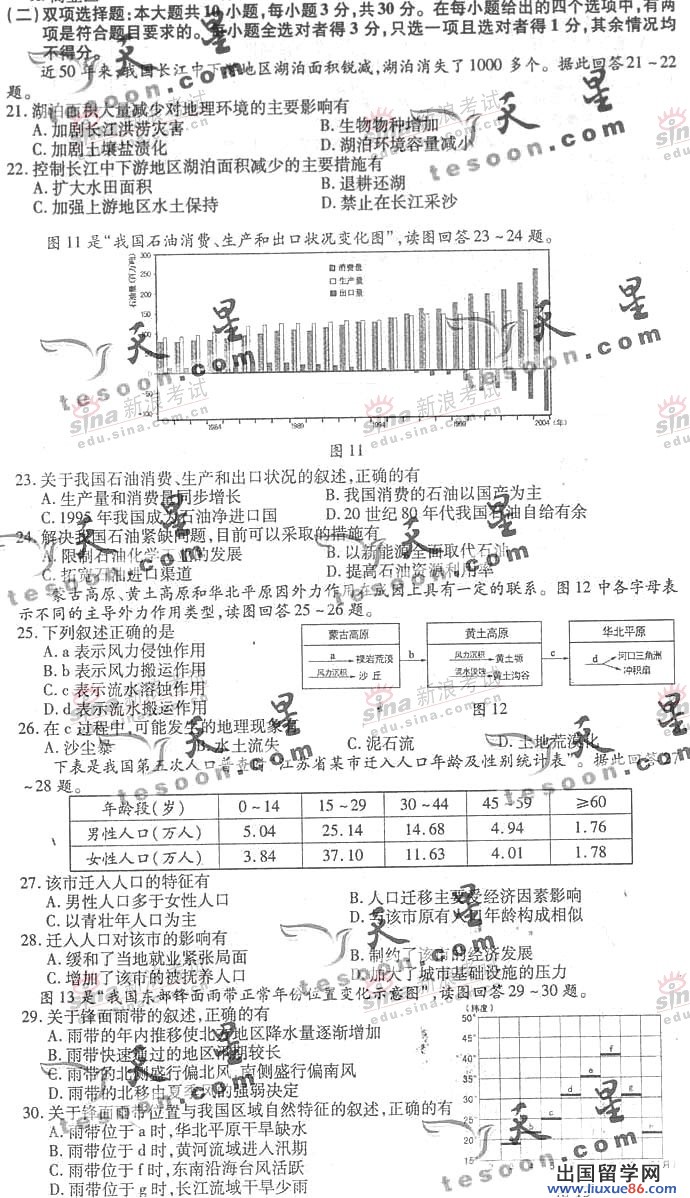 (二)双项选择题:本大题共10小题,每小题3分,共30分。在每小题给出的四个选项中,有两
项是符合题目要求的。每小题全选对者得3分,只选一项且选对者得1分,其余情况均
不得分。
近50年来,我国长江中下游地区湖泊面积锐减,湖泊消失了1000多个。据此回答21~22
题。
21.湖泊面积大量减少对地理环境的主要影响有
A.加剧长江洪涝灾害 B.生物物种增加
C.加剧土壤盐渍化 D.湖泊环境容量减小
22.控制长江中下游地区湖泊面积减少的主要措施有
A.扩大水田面积 B.退耕还湖
C.加强上游地区水土保持 D.禁止在长江采沙
图11是“我国石油消费、生产和出口状况变化图”,读图回答23~24题。
石油量(百万吨)
300
250
200
150
100
50
0
消费量
生产量
出口量
1984 1989 1994 1999 2004(年)
图11
23.关于我国石油消费、生产和出口状况的叙述,正确的有
A.生产量和消费量同步增长 B.我国消费的石油以国产为主
C.1995年我国成为石油净进口国 D.20世纪80年代我国石油自给有余
24.解决我国石油紧缺问题,目前可以采取的措施有
A.限制石油化学工业的发展 B.以新能源全面取代石油
C.拓宽石油进口渠道 D.提高石油资源利用率
蒙古高原、黄土高原和华北平原因外力作用在成因上具有一定的联系。图12中各字母表
示不同的主导外力作用类型,读图回答25~26题。
25.下列叙述正确的是
A.a表示风力侵蚀作用
B.b表示风力搬运作用
C.c表示流水溶蚀作用
D.d表示流水搬运作用
蒙古高原
a 裸岩荒漠
风力沉积 沙丘
b
黄土高原
风力沉积 黄土塬
流水侵蚀 黄土沟谷
c
华北平原
d 河口三角洲
冲积扇
图12
26.在c过程中,可能发生的地理现象有
A.沙尘暴 B.水土流失 C.泥石流 D.土地荒漠化
下表是我国第五次人口普查省“江苏省某市迁入人口年龄及性别统计表”。据此回答27
~28题。
年龄段(岁) 0~14 15~29 30~44 45~59 ≥60
男性人口(万人) 5.04 25.14 14.68 4.94 1.76
女性人口(万人) 3.84 37.10 11.63 4.01 1.78
27.该市迁入人口的特征有
A.男性人口多于女性人口 B.人口迁移主要受经济因素影响
C.以青壮年人口为主 D.与该市原有人口年龄构成相似
28.迁入人口对该市的影响有
A.缓和了当地就业紧张局面 B.制约了该市的经济发展
C.增加了该市的被抚养人口 D.加大了城市基础设施的压力
图13是“我国东部锋面雨带正常年份位置变化示意图”,读图回答29~30题。
29.关于锋面雨带的叙述,正确的有
A.雨带的年内推移使北方地区降水量逐渐增加
B.雨带快速通过的地区汛期较长
C.雨带的北侧盛行偏北风,南侧盛行偏南风
D.雨带的北移由夏季风的强弱决定
30.关于锋面雨带位置与我国区域自然特征的叙述,正确的有
A.雨带位于a时,华北平原干旱缺水
B.雨带位于d时,黄河流域进入汛期
C.雨带位于f时,东南沿海台风活跃
D.雨带位于g时,长江流域干旱少雨
(纬度)
50°
45
40
35
30
25
20
15
月
天星
tesoon.com
sina新浪考试
edu.sina.com.cn
出国留学网
www.liuxue86.com